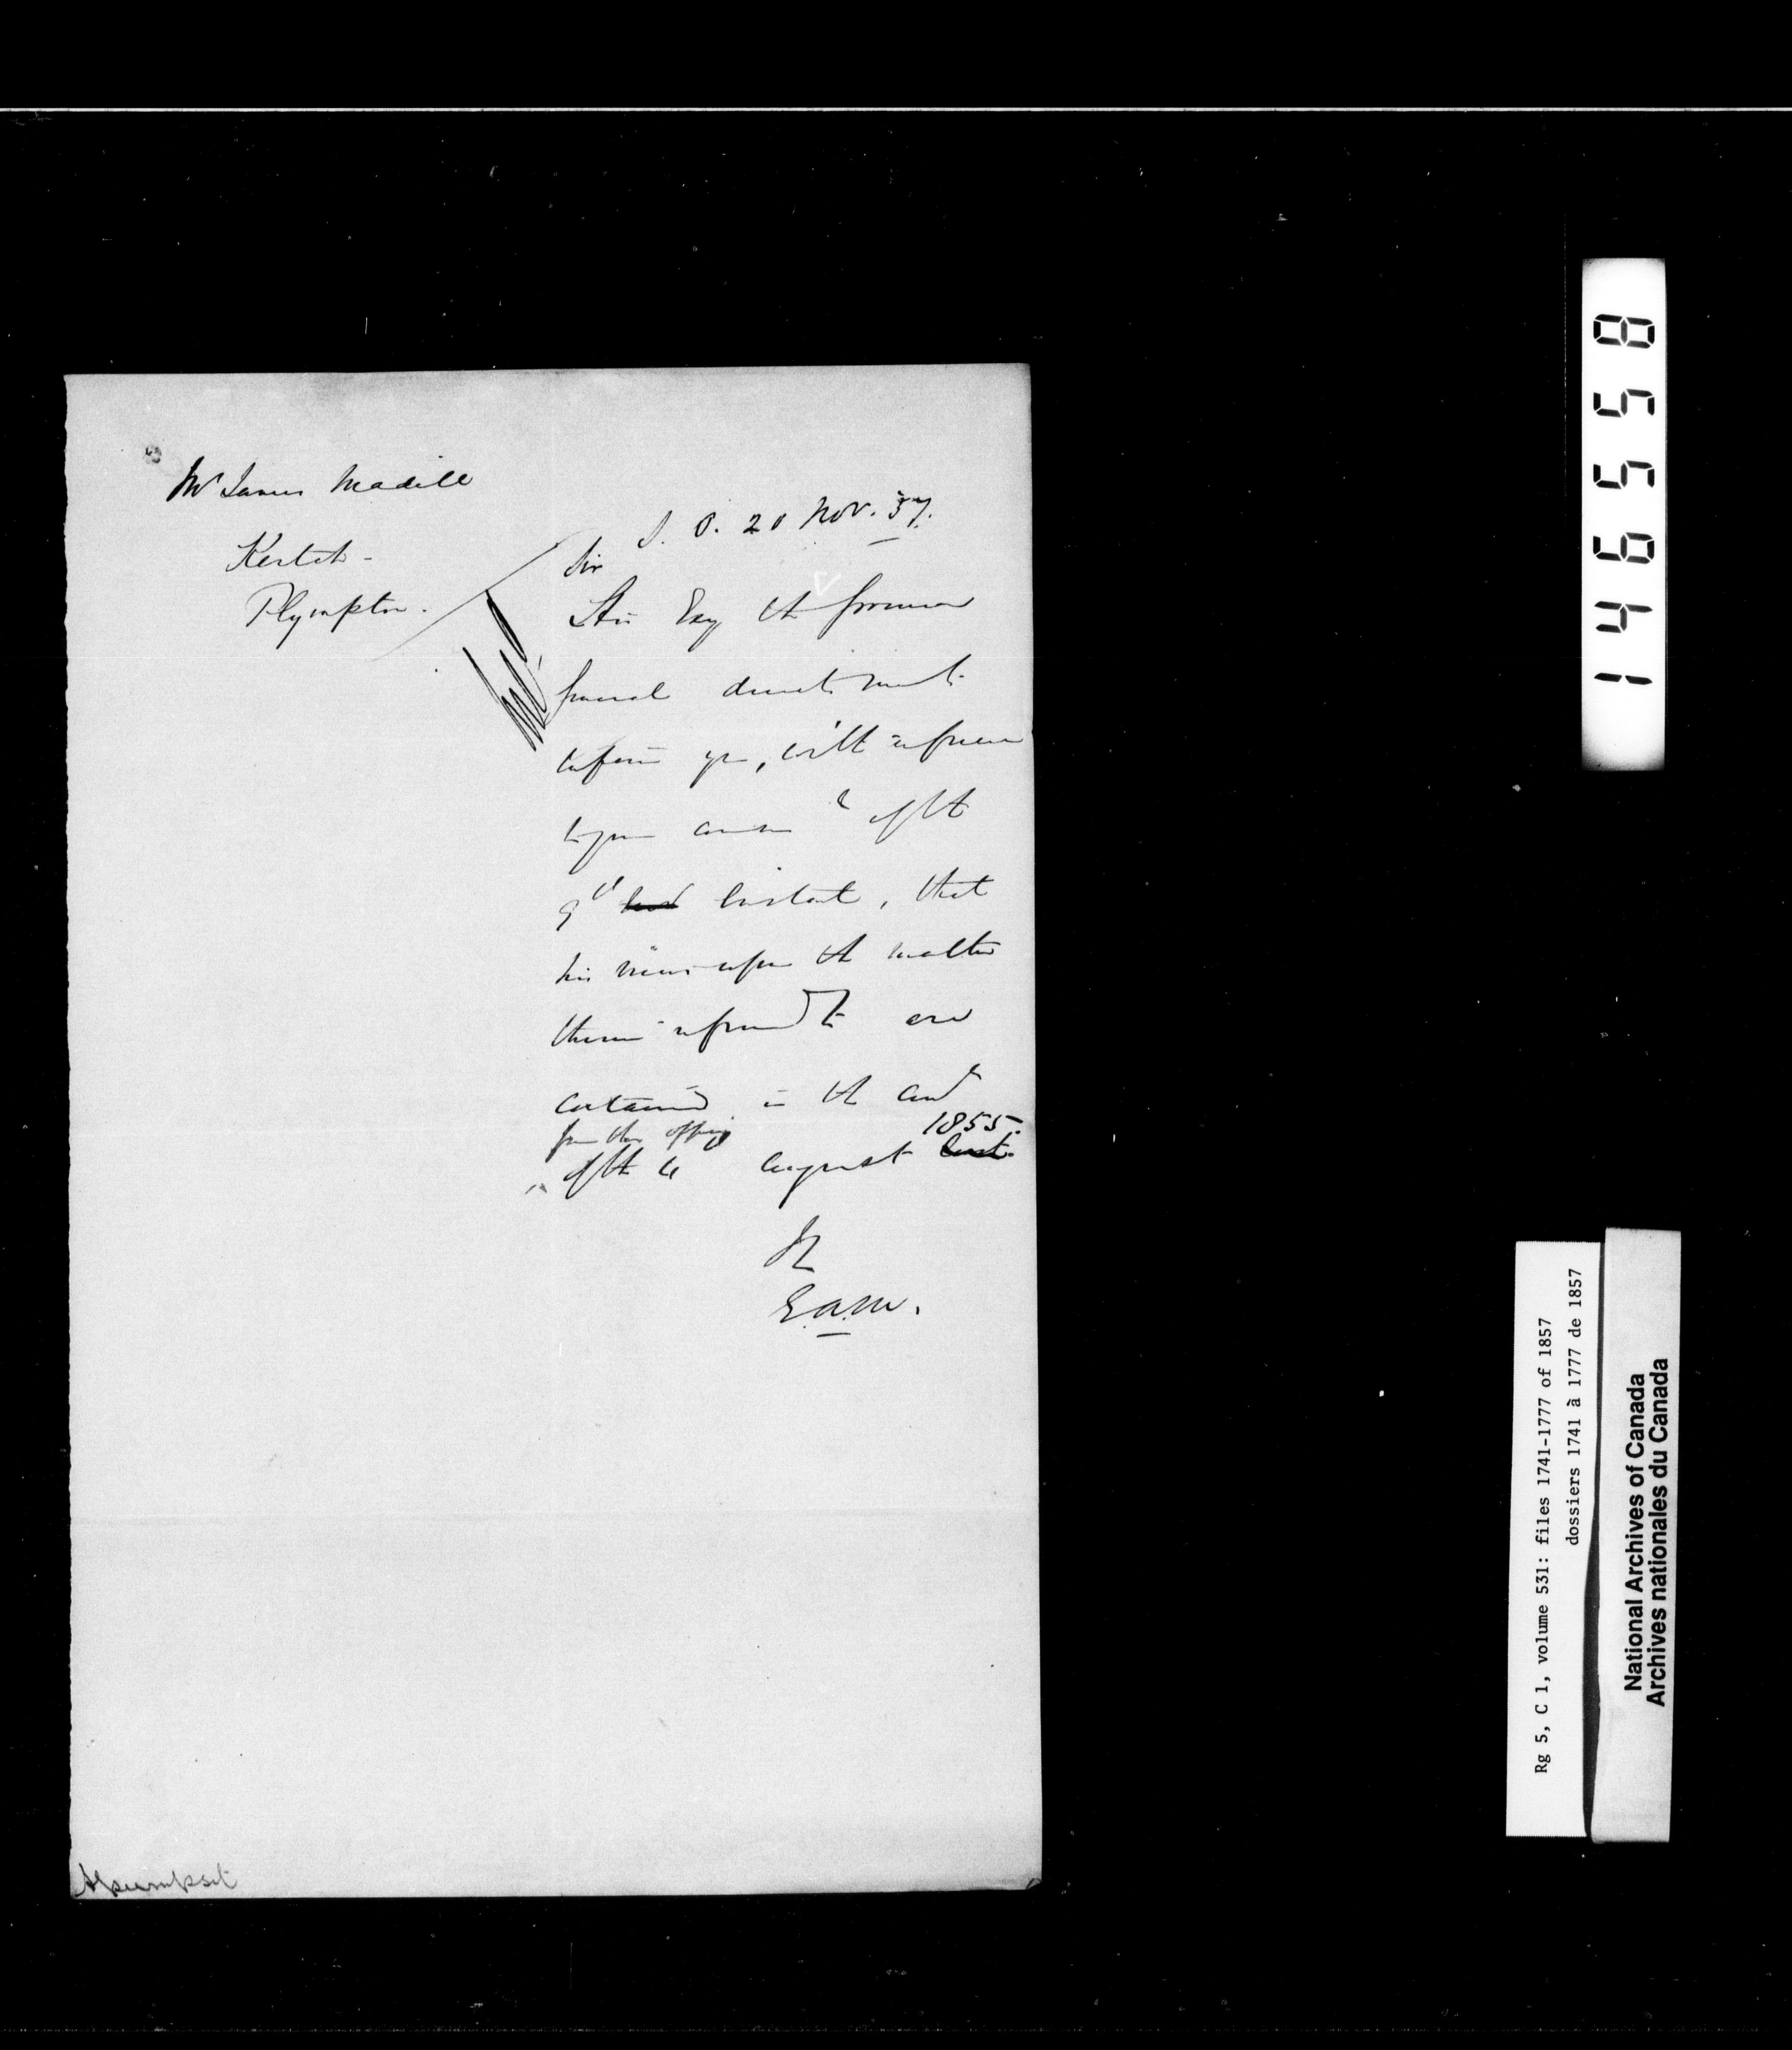 Mr James Madill
Kertch -
Plympton.
S. O. 20 Nov. 57.
Sir
His Exy the Governor
General directs me to
inform you, with reference
to your comn of the
9th last Instant, that
his views upon the matter
therein referred to are
contained in the comn
from this office
1855.
of the 4 August last.
I &
E.A.M.
146558
Rg 5, C 1, volume 531: files 1741-1777 of 1857
dossiers 1741 à 1777 de 1857
National Archives of Canada
Archives nationales du Canada